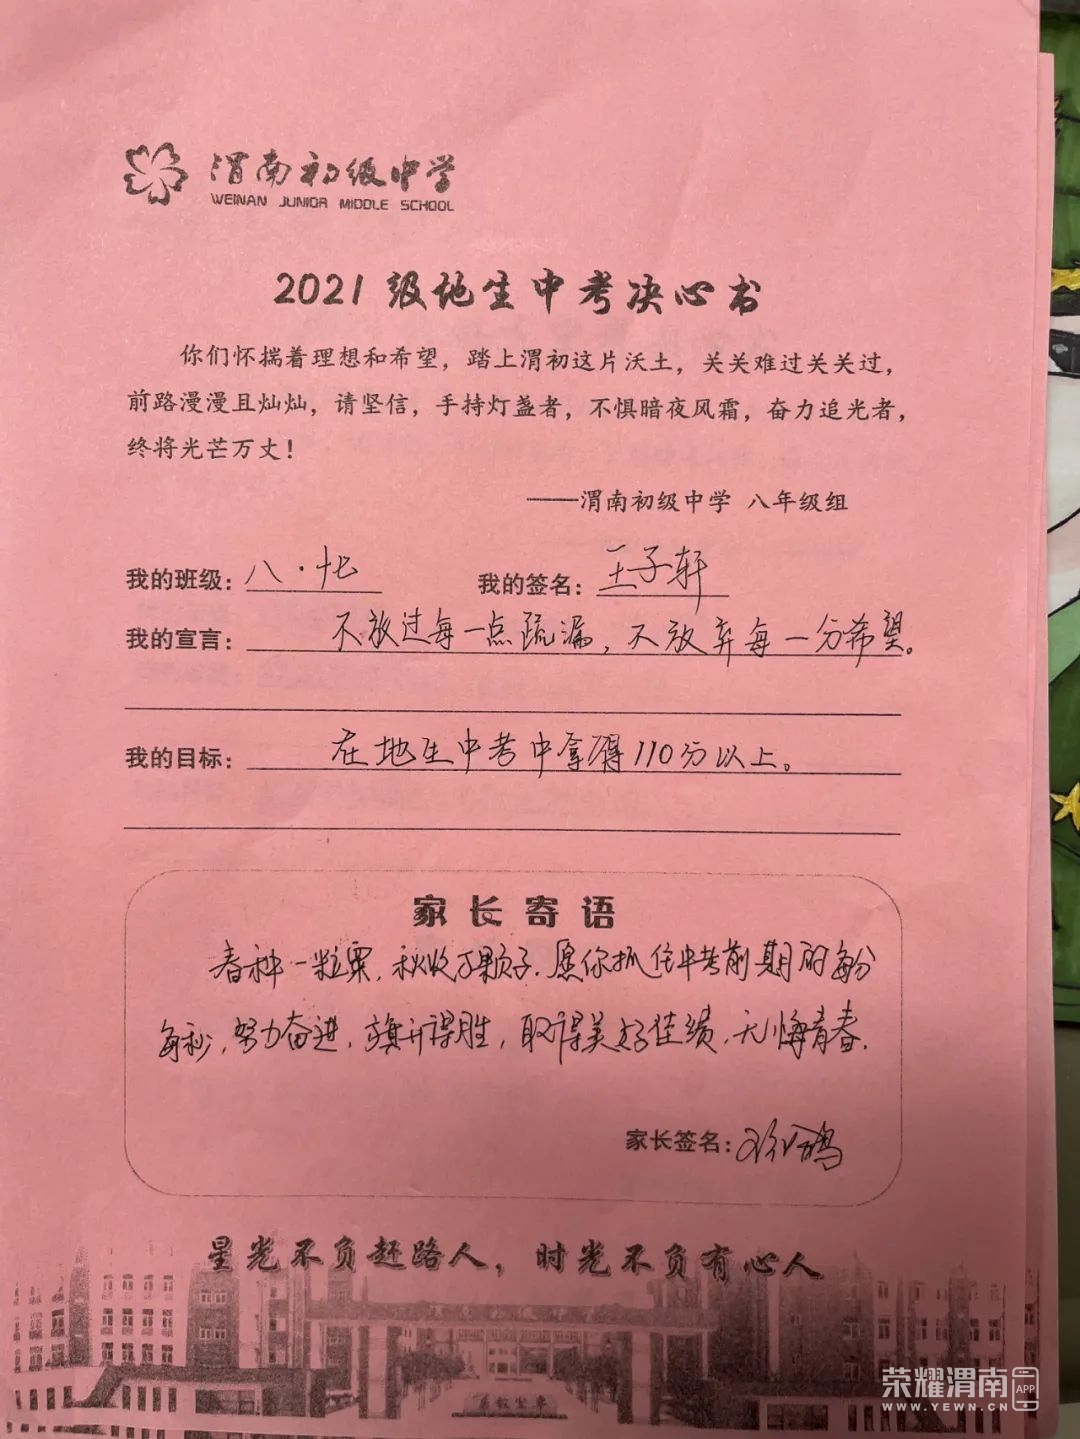 渭南初级中学
WEINAN JUNIOR MIDDLE SCHOOL
2021级地生中考决心书
你们怀揣着理想和希望，踏上渭初这片沃土，关关难过关关过，
前路漫漫且灿灿，请坚信，手持灯盏者，不惧暗夜风霜，奋力追光者，
终将光芒万丈！
——渭南初级中学 八年级组
我的班级：八·十七 我的签名：王子轩
我的宣言：不放过每一点疏漏，不放弃每一分希望。
我的目标：在地生中考中拿得110分以上。
家长寄语
春种一粒粟，秋收万颗子．愿你抓住中考前期的每分
每秒，努力奋进，旗开得胜，取得美好佳绩，无悔青春．
家长签名：
星光不负赶路人，时光不负有心人
荣耀渭南APP
WWW.YEWN.CN